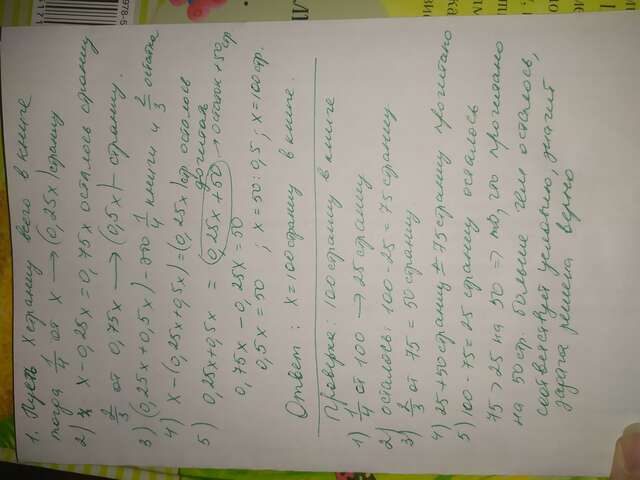 1. Пусть x страниц всего в книге
тогда 1/4 от x → (0,25x) страниц
2) x - 0,25x = 0,75x осталось страниц
2/3 от 0,75x → (0,5x) - страниц.
3) (0,25x + 0,5x) - это 1/4 книги и 2/3 остатка
4) x - (0,25x + 0,5x) = (0,25x) стр осталось
дочитать
5) 0,25x + 0,5x = (0,25x + 50) → остаток + 50 стр
0,75x - 0,25x = 50
0,5x = 50 ; x = 50 : 0,5 ; x = 100 стр.
Ответ : x = 100 страниц в книге.
Проверка: 100 страниц в книге
1) 1/4 от 100 → 25 страниц
2) осталось: 100 - 25 = 75 страниц
3) 2/3 от 75 = 50 страниц
4) 25 + 50 страниц = 75 страниц прочитано
5) 100 - 75 = 25 страниц осталось
75 > 25 на 50 => то, что прочитано
на 50 стр. больше чем осталось,
соответствует условию, значит
задача решена верно
978-5